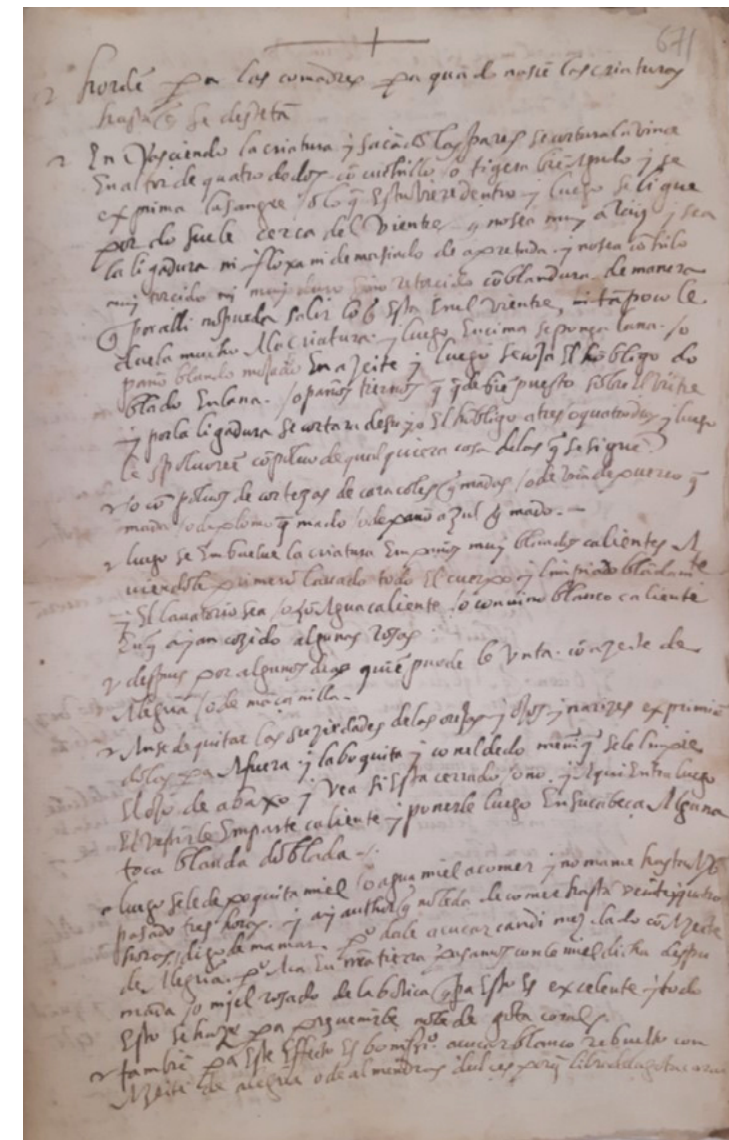 671
hordē pa las comadres pa quādo nasiē las criaturas
hasta q̄ se destetā
En nasciendo la criatura y sacādo las pares se cortara la vince
En altor de quatro dedos cō cuchillo /o tigera biē agudo y se
exprima la sangre /o lo q̄ Estubiere dentro y luego se ligue
por do suele cerca del vientre y no sea muy a raiz y sea
la ligadura ni floxa ni demasiado de apretada y no sea cō hilo
muy torcido ni muy duro sino retorcido cō blandura de manera
q̄ por alli no pueda salir lo q̄ Esta En el vientre, ni tāpoco le
duela mucho A la criatura y luego Encima se ponga lana /o
paño blando mojado En azeite y luego se coja El hōbligo do
blado En lana /o paños tiernos q̄ quede biē puesto sobre El viētre
y por la ligadura se cortara El hōbligo a tres o quatro dias y luego
le spoluoreē cō poluo de qualquiera cosa de las q̄ se siguē
/o cō poluos de cortezas de caracoles q̄mados /o de vña de puerco q̄
mada /o de plomo q̄mado /o de paño azul q̄mado.
luego se Embuelue la criatura En paños muy blādos calientes A
viendole primero lauado todo El cuerpo y limpiado blādamēte
y El lauatorio sea /o cō Agua caliente /o con vino blanco caliente
En q̄ ajan cozido algunas rosas
despues por algunos dias quiē puede le vnta cō azeite de
Alegria /o de mācanilla.
Anse de quitar las suziedades de las orejas y ojos y narizes exprimiē
dolas pa Afuera y la boquita y con el dedo meniq̄ se le limpie
El ojo de abaxo y vea si Esta cerrado /o no. y Aqui Entra luego
El vestirle En parte caliente y ponerle luego En su cabeça Alguna
toca blanda doblada
luego se le de poquita miel /o agua miel a comer y no mame hasta
pasado tres horas. y ay author q̄ no le da de comer hasta veinte y quatro
horas, digo de mamar. po dale açucar candi mezclado cō Azeite
de Alegria. po Aca En nra tierra pasamos con la miel dicha
mada /o miel rosado de la botica q̄ pa Esto Es excelente y todo
Esto se haze pa preuenirle no le de gota coral.
tambiē pa Este Effecto Es bonissio. açucar blanco rebuelto con
Azeite de alegria o de almendras dulces porq̄